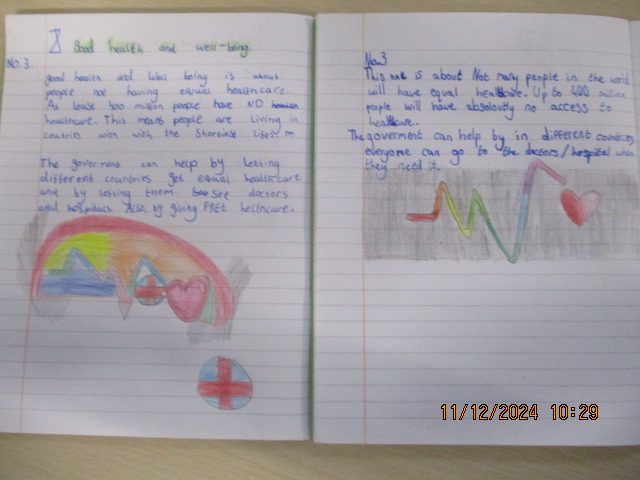 Good health and well-being.
NO.3.
good health and Well being is about
people not having equal healthcare.
At least 400 million people have NO
healthcare. This means people are living in
countries with with the Shortest
The goverment can help by letting
different countries get equal healthcare
and by letting them see doctors
and hospitals Also, by giving FREE helthcare.
No.3
This one is about Not many people in the world
will have equal healthcare. Up to 400 million
people will have absoloutly no access to
healthcare.
The goverment can help by in different countries
everyone can go to the doctors/hospital when
they need it.
11/12/2024 10:29